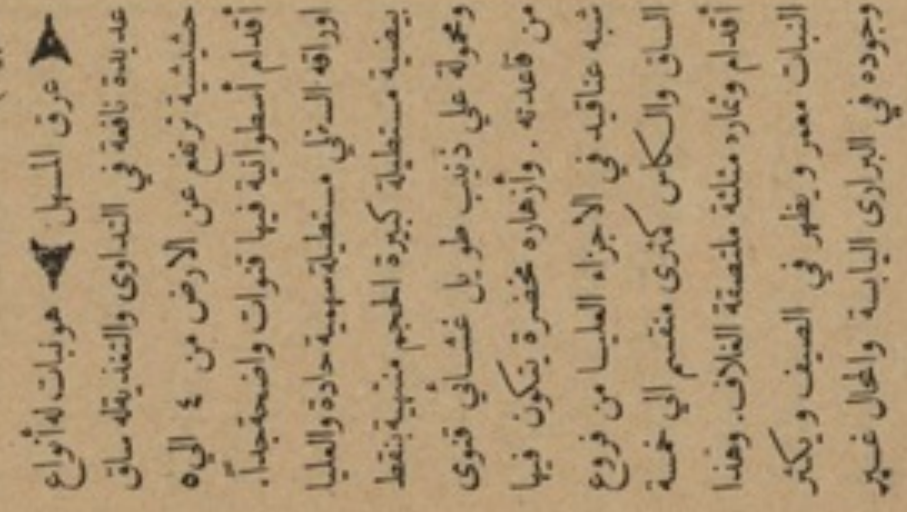 عرق المسهل هو نبات له أنواع
عديدة نافعة في التداوى والتغذية له ساق
حشيشية ترتفع عن الارض من ٤ الى ٥
أقدام أسطوانية فيها قنوات واضحة جداً.
اوراقه السفلي مستطيلة سهمية حادة والعليا
بيضية مستطيلة كبيرة الحجم منتهية بنقط
ومحمولة على ذنيب طويل غشائي قنوى
من قاعدته . وأزهاره مخضرة يتكون فيها
شبه عناقيد في الاجزاء العليا من فروع
الساق والكاس كمثرى منقسم الي خمسة
أقدام وثماره مثلثة ملتصقة الغلاف. وهذا
النبات معمر ويظهر في الصيف ويكثر
وجوده في البرارى اليابسة والمحال غير